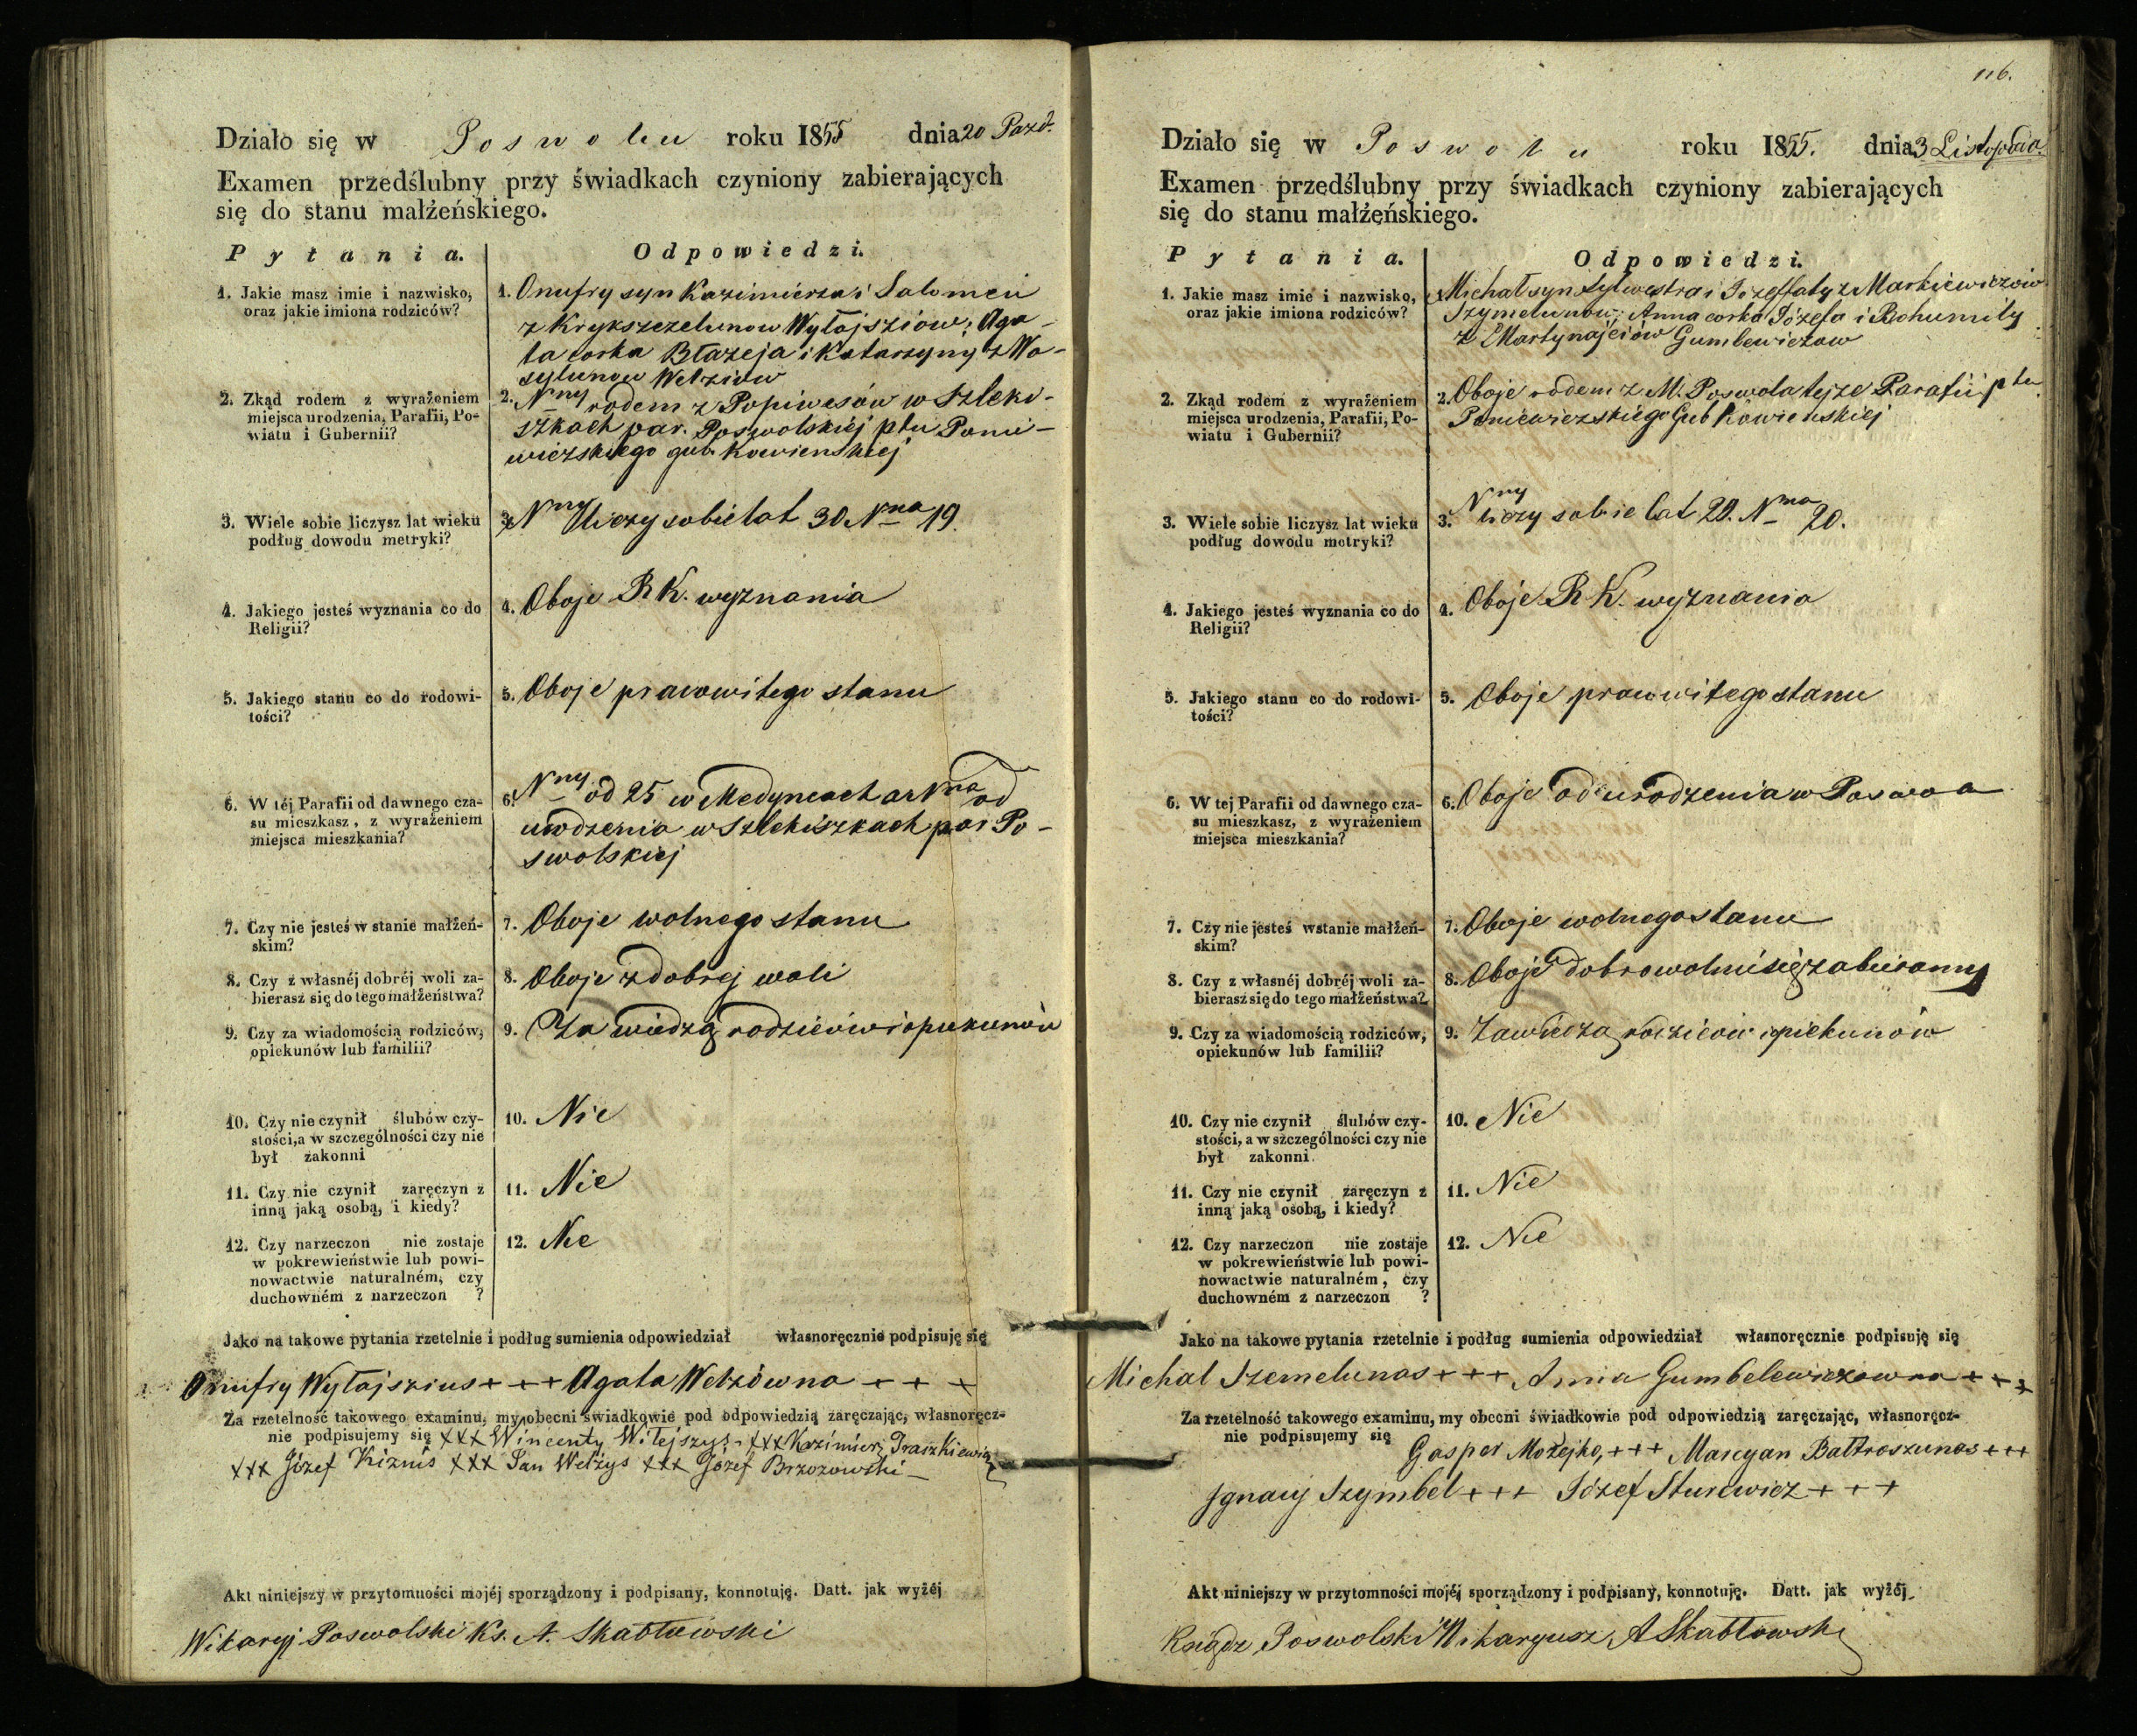 Działo się w Poswolu roku 1855 dnia 20 Pazd.
Examen przedślubny przy świadkach czyniony zabierających
się do stanu małżeńskiego.
Pytania. Odpowiedzi.
1. Jakie masz imie i nazwisko,
oraz jakie imiona rodziców?
1. Onufry syn Kazimierza i Salomei
z Krykszczelunow Wytajsziów; Aga-
ta corka Błazeja i Katarzyny z Wa-
sylunow Wełziow
2. Zkąd rodem z wyrażeniem
miejsca urodzenia, Parafii, Po-
wiatu i Gubernii?
2. Nny rodem z Popiwesów w Szleki-
szkach par. Poswolskiej ptu Ponie-
wiezskiego gub. Kowienskiej
3. Wiele sobie liczysz lat wieku
podług dowodu metryki?
3. Nny liczy sobie lat 30 Nna 19.
4. Jakiego jesteś wyznania co do
Religii?
4. Oboje R K. wyznania
5. Jakiego stanu co do rodowi-
tości?
5. Oboje prawowitego stanu
6. W téj Parafii od dawnego cza-
su mieszkasz, z wyrażeniem
miejsca mieszkania?
6. Nny od 25 w Medyncach a Nna od
urodzenia w Szlekiszkach par Po-
swolskiej
7. Czy nie jesteś w stanie małżeń-
skim?
7. Oboje wolnego stanu
8. Czy z własnéj dobréj woli za-
bierasz się do tego małżeństwa?
8. Oboje z dobrej woli
9. Czy za wiadomością rodziców,
opiekunów lub familii?
9. Za wiedzą rodziców i opiekunów
10. Czy nie czynił ślubów czy-
stości, a w szczególności czy nie
był zakonni
10. Nie
11. Czy nie czynił zaręczyn z
inną jaką osobą, i kiedy?
11. Nie
12. Czy narzeczon nie zostaje
w pokrewieństwie lub powi-
nowactwie naturalném, czy
duchowném z narzeczon ?
12. Nie
Jako na takowe pytania rzetelnie i podług sumienia odpowiedział własnoręcznie podpisuję się
Onufry Wytajszius + + + Agata Wełzówna + + +
Za rzetelność takowego examinu, my obecni świadkowie pod odpowiedzią zaręczając, własnoręcz-
nie podpisujemy się xxx Wincenty Witejszys. xxx Kazimierz Praszkiewicz
xxx Józef Kiznis xxx Jan Wełżys xxx Józef Brzozowski
Akt niniejszy w przytomności mojéj sporządzony i podpisany, konnotuję. Datt. jak wyżéj
Wikaryj Poswolski Ks. A. Skabłowski
116.
Działo się w Poswolu roku 1855. dnia 3 Listopada.
Examen przedślubny przy świadkach czyniony zabierających
się do stanu małżeńskiego.
Pytania. Odpowiedzi.
1. Jakie masz imie i nazwisko,
oraz jakie imiona rodziców?
1. Michał syn Sylwestra i Jozeffaty z Markiewiczow
Szymelunow; Anna corka Józefa i Bohumiły
z Martynajciów Gumlewiczow
2. Zkąd rodem z wyrażeniem
miejsca urodzenia, Parafii, Po-
wiatu i Gubernii?
2. Oboje rodem z M. Poswola tejze Parafii ptu
Poniewiezskiego Gub Kowienskiej
3. Wiele sobie liczysz lat wieku
podług dowodu metryki?
3. Nny liczy sobie lat 29. Nna 20.
4. Jakiego jesteś wyznania co do
Religii?
4. Oboje R K. wyznania
5. Jakiego stanu co do rodowi-
tości?
5. Oboje prawwitego stanu
6. W tej Parafii od dawnego cza-
su mieszkasz, z wyrażeniem
miejsca mieszkania?
6. Oboje od urodzenia w
7. Czy nie jesteś wstanie małżeń-
skim?
7. Oboje wolnego stanu
8. Czy z własnéj dobréj woli za-
bierasz się do tego małżeństwa?
8. Oboje dobrowolnie się zabieramy
9. Czy za wiadomością rodziców,
opiekunów lub familii?
9. Za wiedzą rodzicow opiekunów
10. Czy nie czynił ślubów czy-
stości, a w szczególności czy nie
był zakonni.
10. Nie
11. Czy nie czynił zaręczyn z
inną jaką osobą, i kiedy?
11. Nie
12. Czy narzeczon nie zostaje
w pokrewieństwie lub powi-
nowactwie naturalném, czy
duchowném z narzeczon ?
12. Nie
Jako na takowe pytania rzetelnie i podług sumienia odpowiedział własnoręcznie podpisuję się
Michał Szemelunas + + + Anna Gumbelewiczowna + + +
Za rzetelność takowego examinu, my obecni świadkowie pod odpowiedzią zaręczając, własnoręcz-
nie podpisujemy się
Gasper Możejko, + + + Marcyan Bałtroszunas + + +
Ignacy Szymbel + + + Józef Sturewicz + + +
Akt niniejszy w przytomności mojéj sporządzony i podpisany, konnotuję. Datt. jak wyżéj.
Ksiądz Poswolski Wikaryusz A Skabłowski